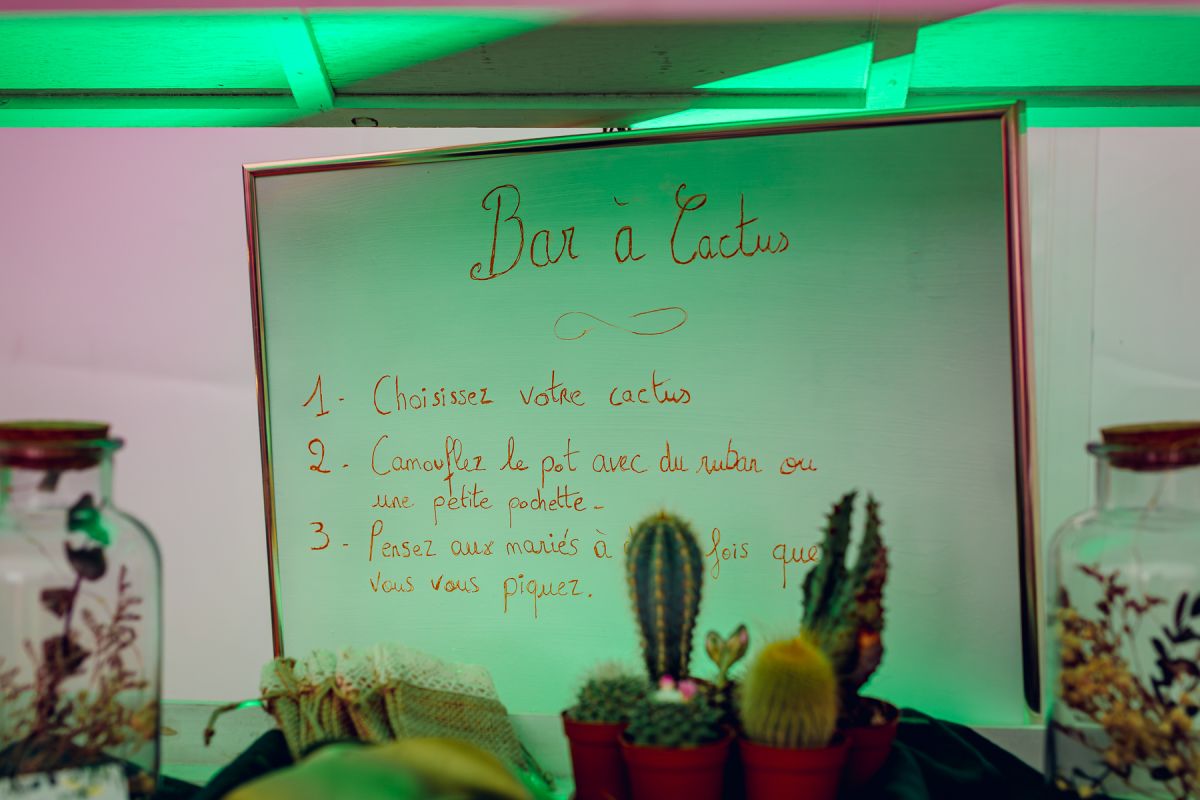 Bar à Cactus
1- Choisissez votre cactus
2- Camouflez le pot avec du ruban ou
une petite pochette-
3- Pensez aux mariés à fois que
vous vous piquez.